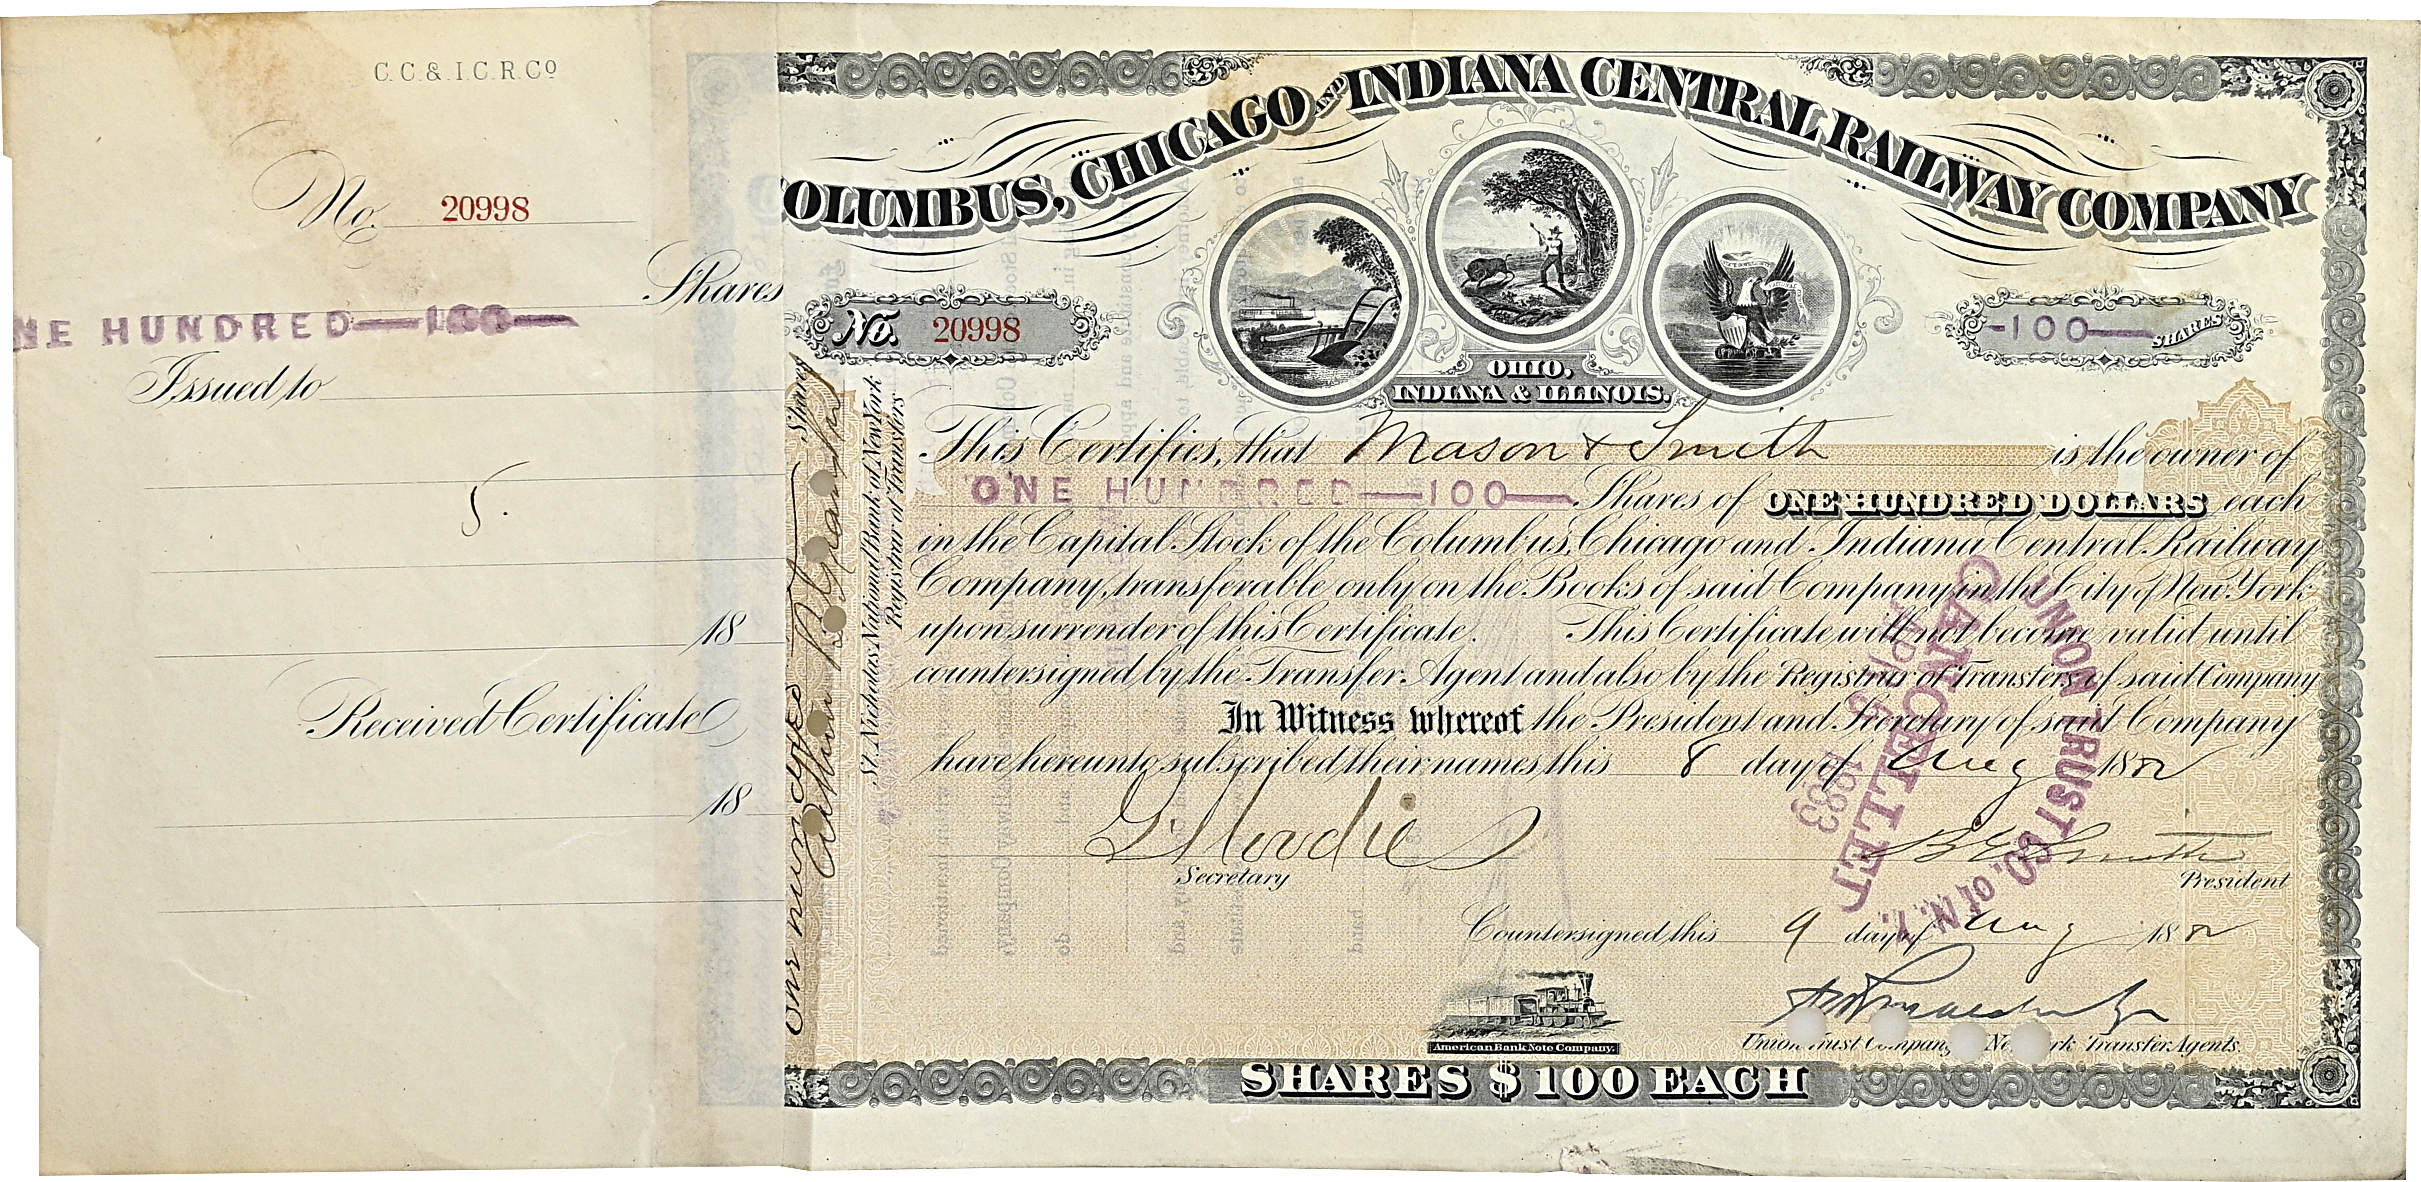 C. C. & I. C. R. Co
No. 20998
Shares
NE HUNDRED—100—
Issued to
5.
18
Received Certificate
18
OLUMBUS, CHICAGO AND INDIANA CENTRAL RAILWAY COMPANY
No. 20998
OHIO,
INDIANA & ILLINOIS.
-100— SHARES
This Certifies, that Mason & Smith is the owner of
ONE HUNDRED—100— Shares of ONE HUNDRED DOLLARS each
in the Capital Stock of the Columbus, Chicago and Indiana Central Railway
Company, transferable only on the Books of said Company in the City of New York
upon surrender of this Certificate. This Certificate will not become valid until
countersigned by the Transfer Agent and also by the Registrar of Transfers of said Company
In Witness whereof the President and Secretary of said Company
have hereunto subscribed their names this 8 day of Aug 1882
G Moodie
Secretary
B E Smith
President
Countersigned this 9 day of Aug 1882
Union Trust Company New York Transfer Agents.
American Bank Note Company.
SHARES $100 EACH
One hundred Shares
St. Nicholas National Bank of New York
Registrar of Transfers
UNION TRUST CO. of N.Y.
CANCELLED
APR 5
1883